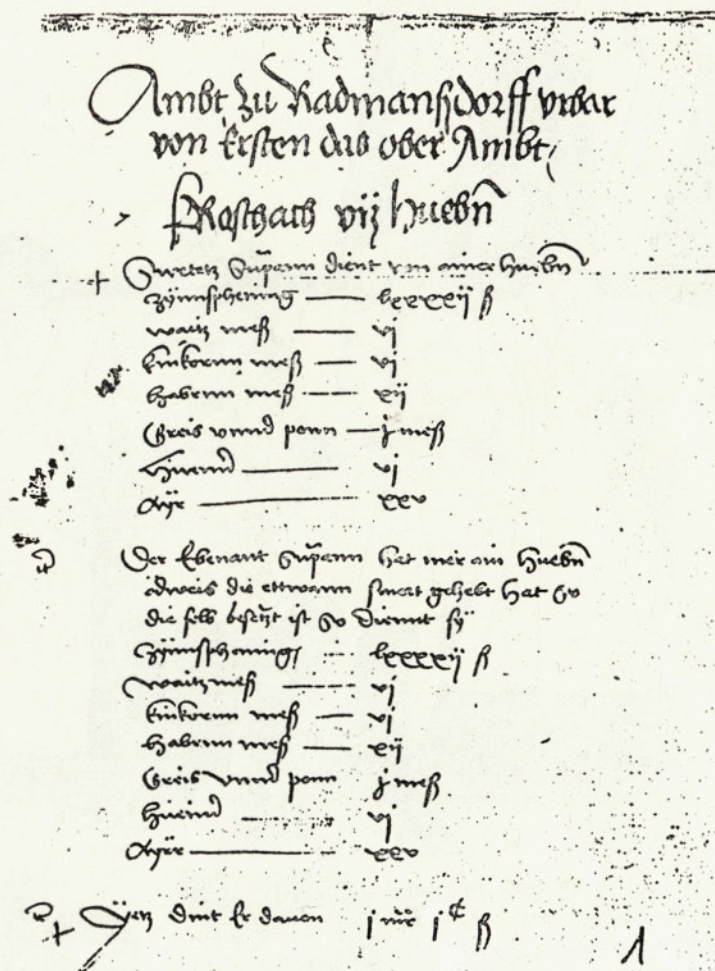 Ambt zu Radmanszdorff vrbar
von Ersten das ober Ambt
Roschach vij Huebn
Suppann dient von ainer Huebn
Zÿnnsphening lxxxxij ß
waitz mesß vj
kinkornn mesß vj
habernn mesß xij
Greis vnnd ponn j mesß
Huenner vj
Ayr xxv
Der Ebenant Suppann hat mer ain Huebn
ödweis die ettwann gehebt hat So
die selb besetzt ist So diennt sÿ
Zÿnnsphening lxxxxij ß
waitz mesß vj
kinkornn mesß vj
habernn mesß xij
Greis vnnd ponn j mesß
Huenner vj
Ayr xxv
Yetz dint Er dauon j mr j ß
1